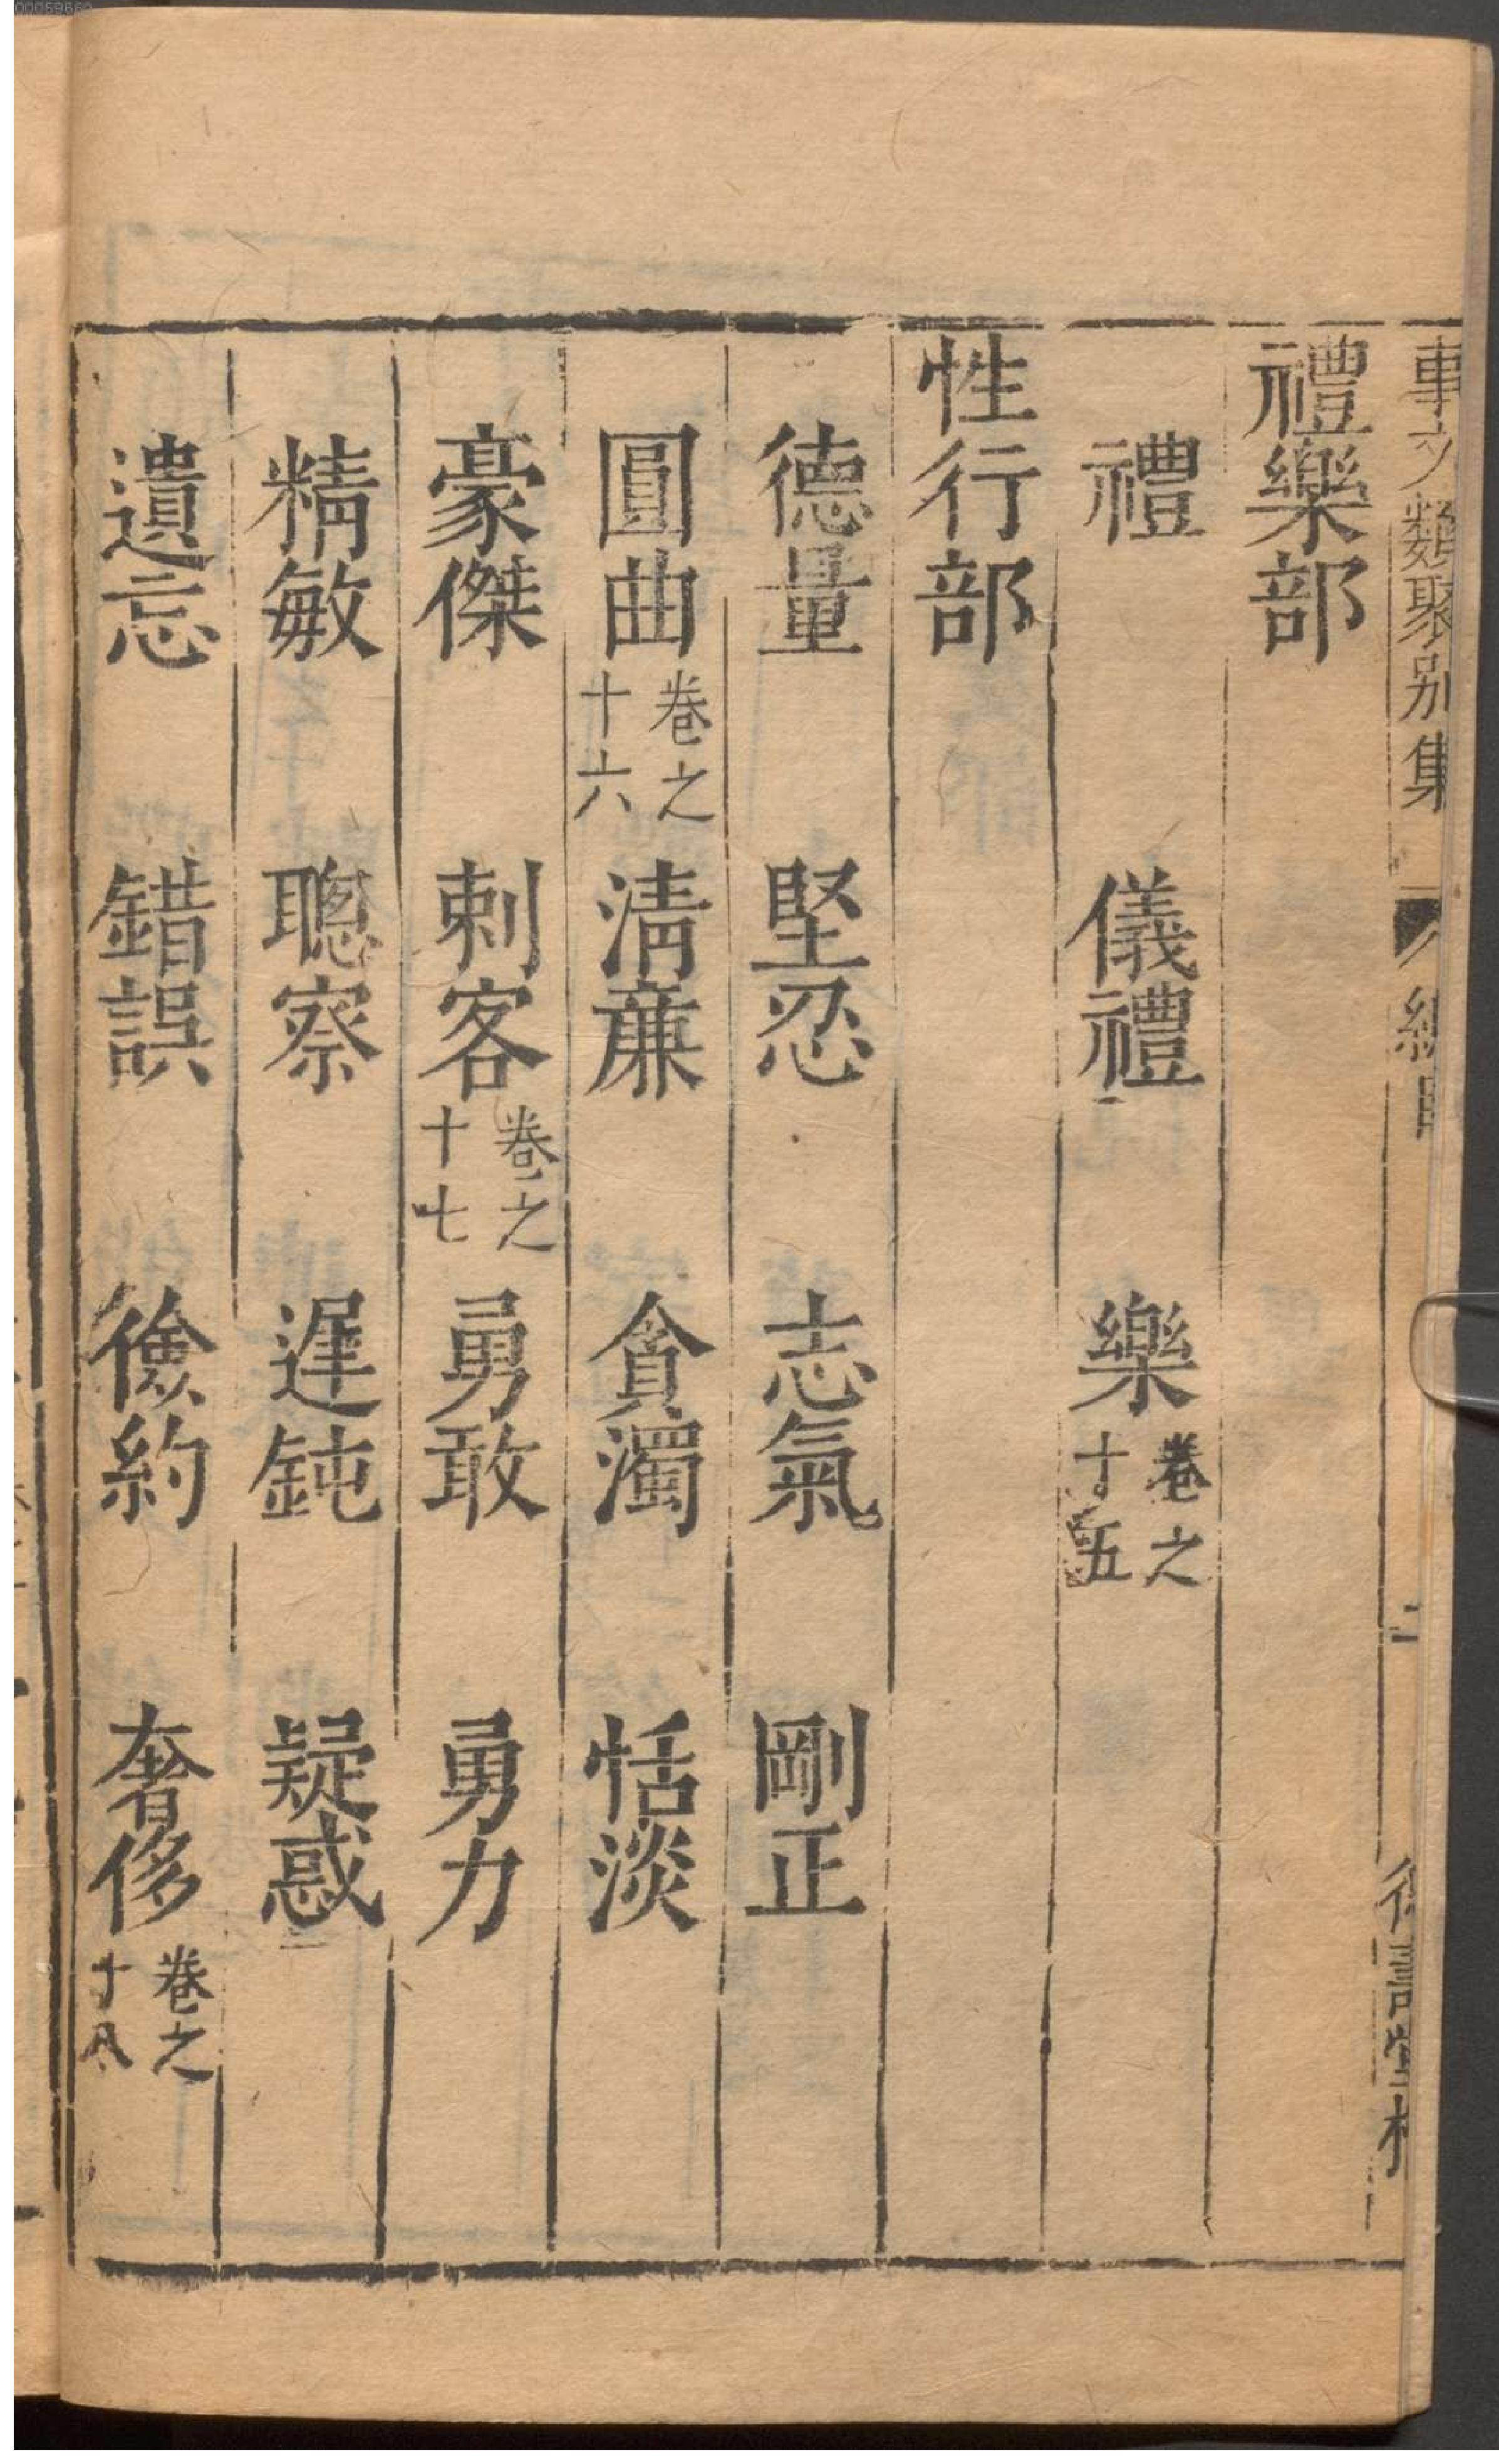 事文類聚别集 總目 二
禮樂部
禮 儀禮 樂 卷之十五
性行部
德量 堅忍 志氣 剛正
圓曲 卷之十六 淸亷 貪濁 恬淡
豪傑 刺客 卷之十七 勇敢 勇力
精敏 聰察 遲鈍 疑惑
遺忘 錯誤 儉約 奢侈 卷之十八